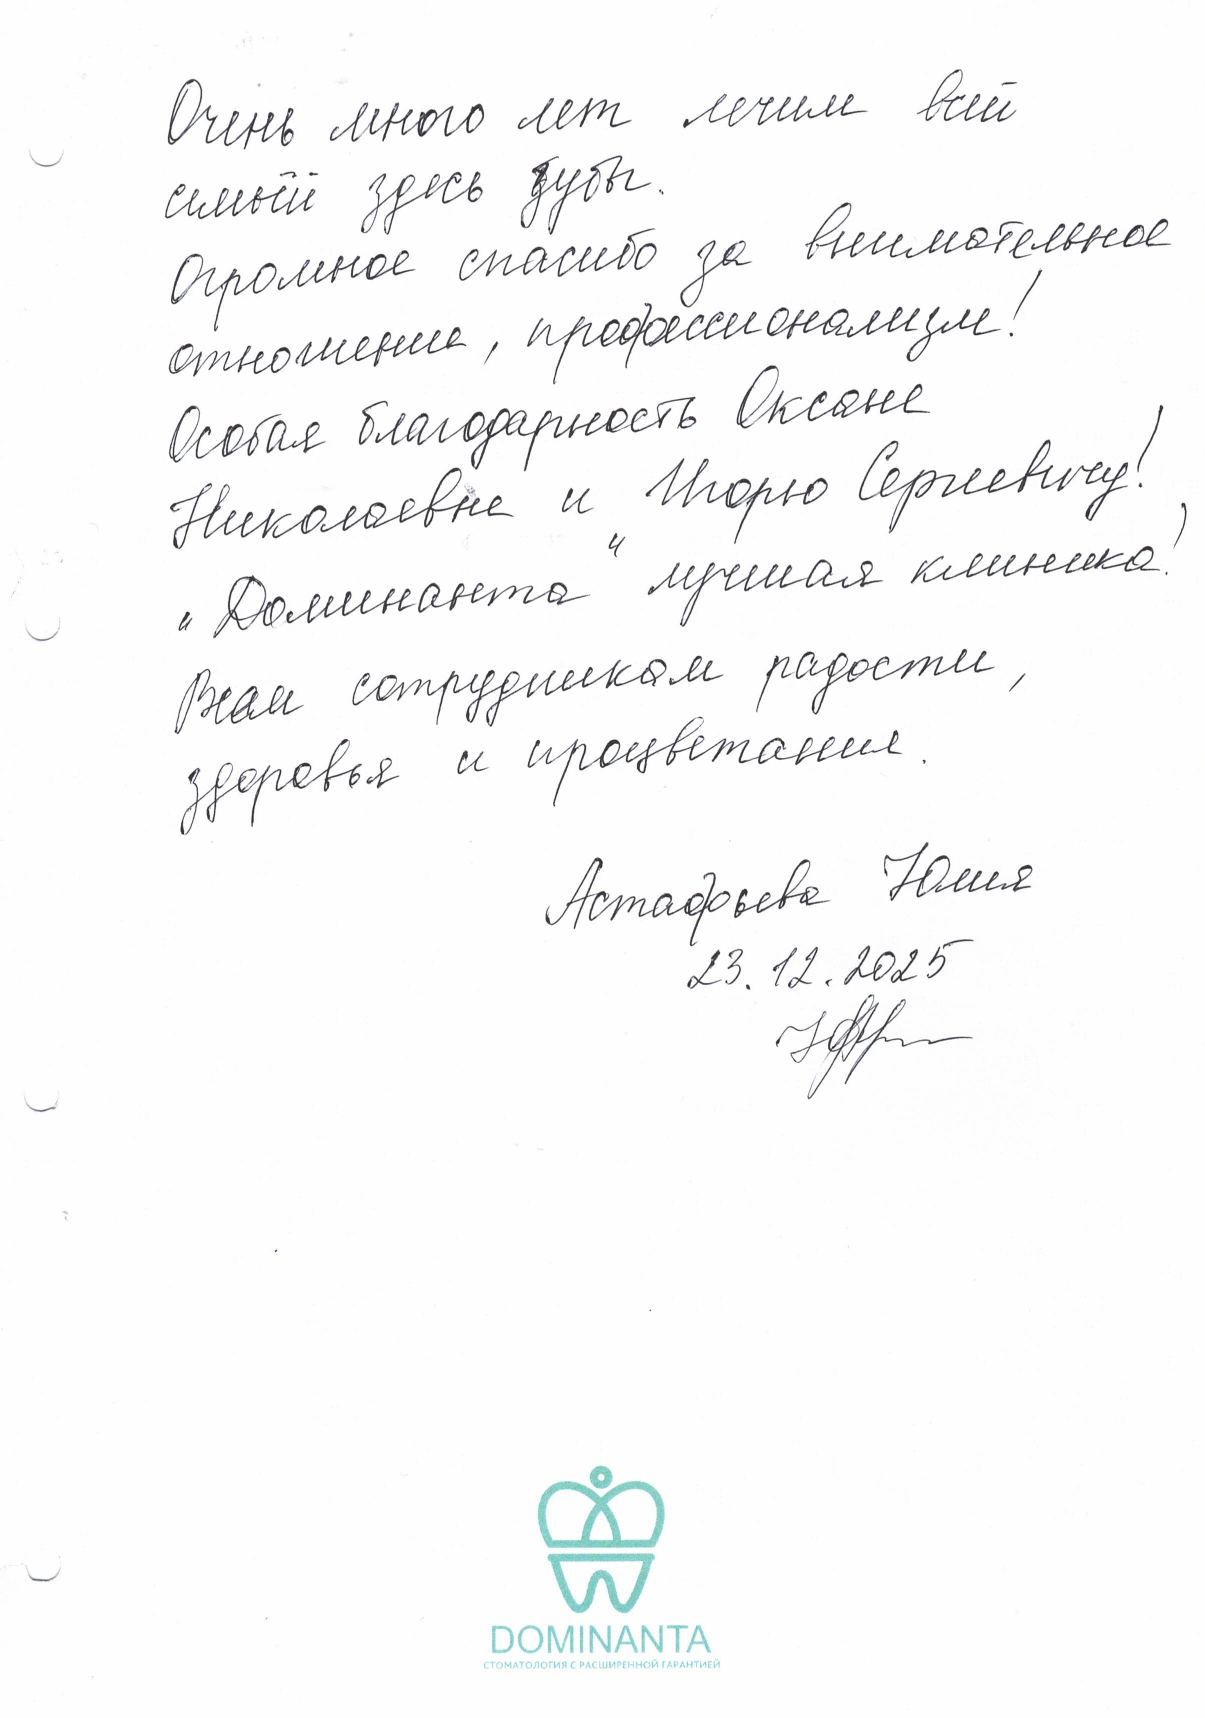 Очень много лет лечим всей
семьёй здесь зубы.
Огромное спасибо за внимательное
отношение, профессионализм!
Особая благодарность Оксане
Николаевне и Игорю Сергеевичу!
„Доминанта“ лучшая клиника!
Вам сотрудникам радости,
здоровья и процветания.
Астафьева Юлия
23.12.2025
DOMINANTA
СТОМАТОЛОГИЯ С РАСШИРЕННОЙ ГАРАНТИЕЙ